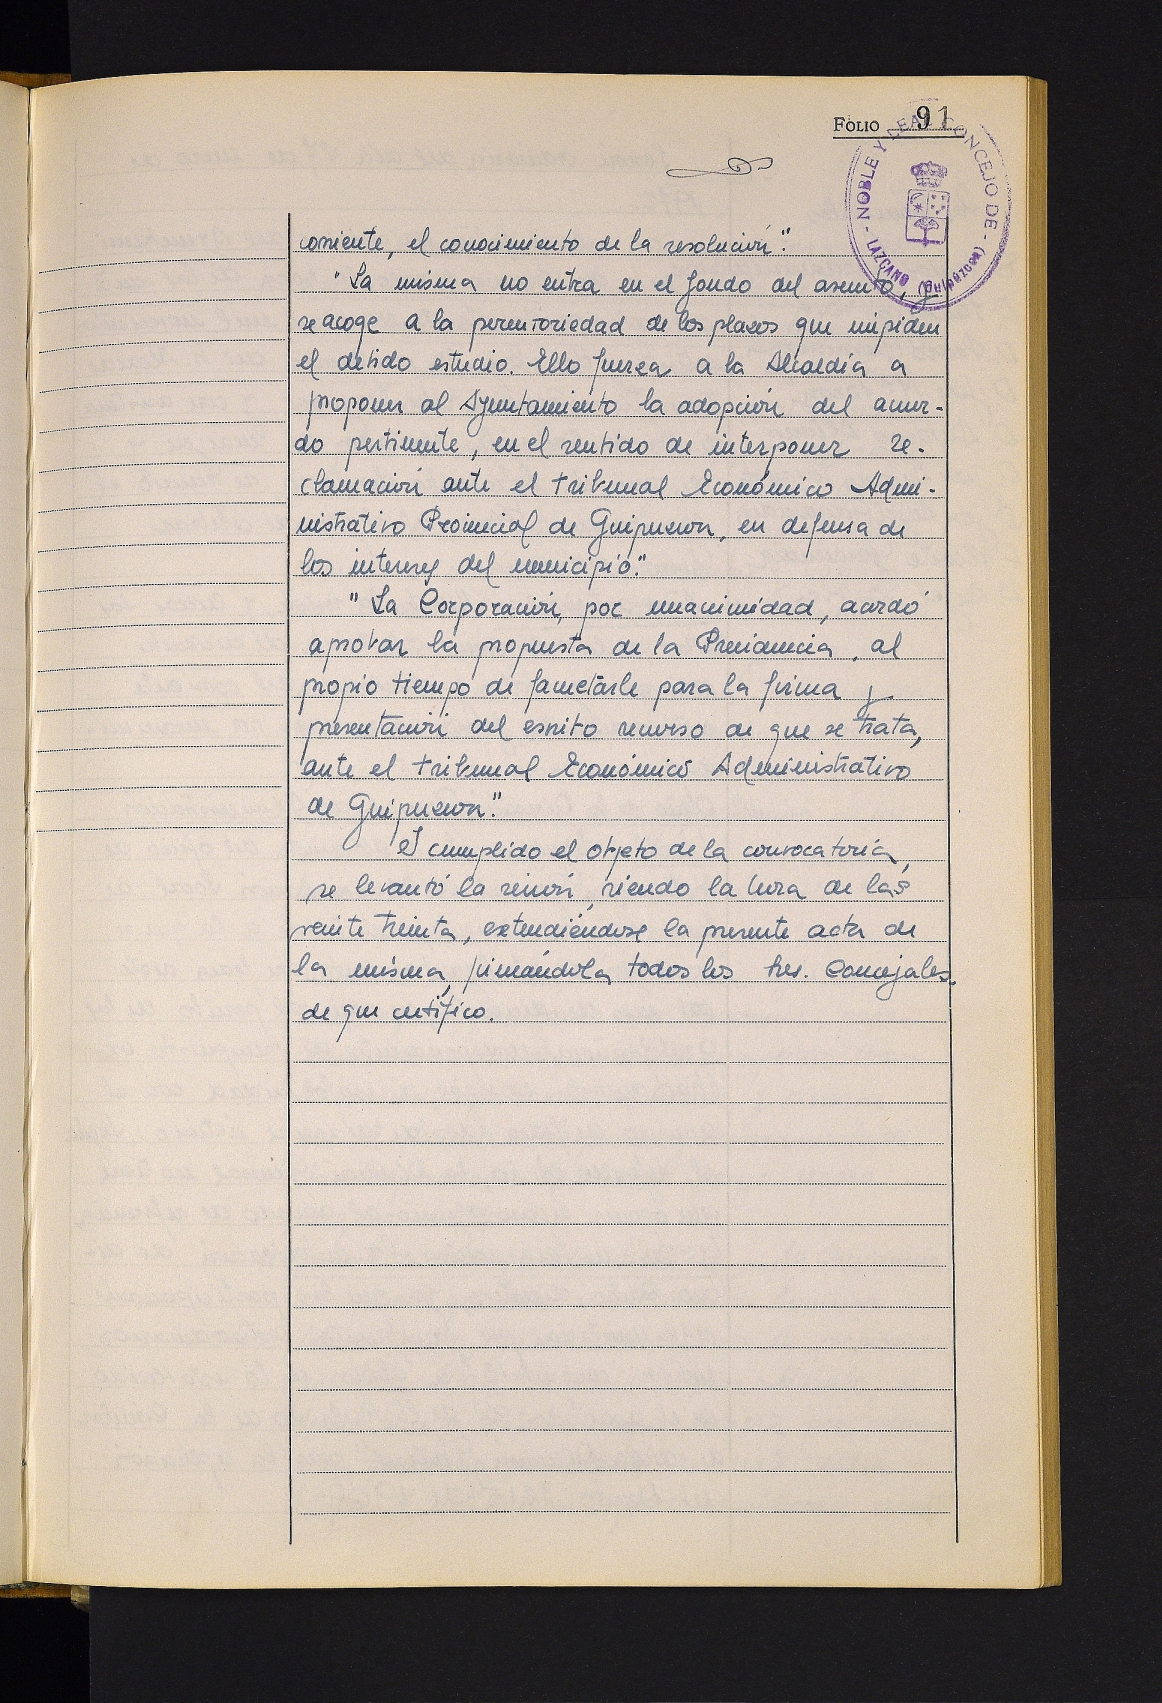 FOLIO 91
- NOBLE Y LEAL CONCEJO DE -
LAZCANO (Guipúzcoa)
corriente, el conocimiento de la resolución".
"La misma no entra en el fondo del asunto, y
se acoge a la perentoriedad de los plazos que impiden
el debido estudio. Ello fuerza a la Alcaldía a
proponer al Ayuntamiento la adopción del acuer-
do pertinente, en el sentido de interponer re-
clamación ante el Tribunal Económico Admi-
nistrativo Provincial de Guipuzcoa, en defensa de
los intereses del municipio."
"La Corporación, por unanimidad, acordó
aprobar la propuesta de la Presidencia, al
propio tiempo de facultarle para la firma y
presentación del escrito recurso de que se trata,
ante el Tribunal Económico Administrativo
de Guipuzcoa."
Y cumplido el objeto de la convocatoria,
se levantó la sesión, siendo la hora de las
veinte treinta, extendiéndose la presente acta de
la misma, firmándola todos los Sres. Concejales,
de que certifico.